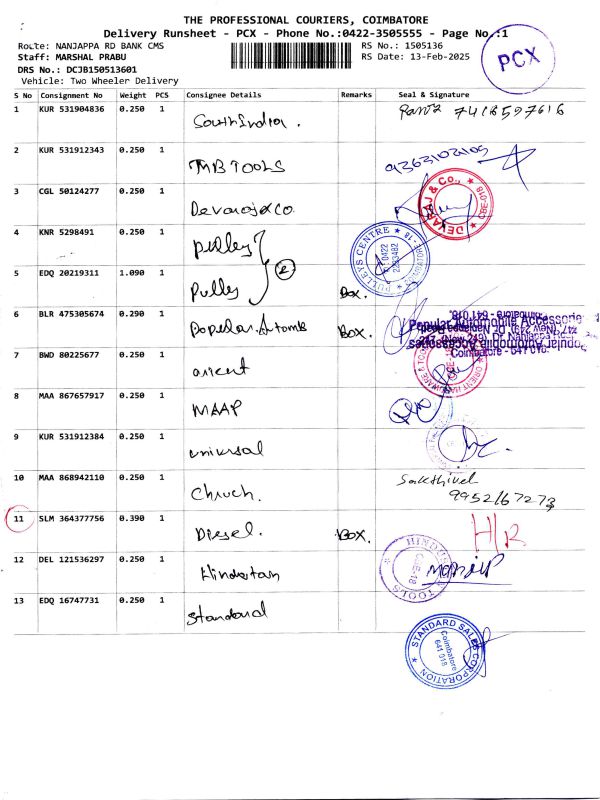 THE PROFESSIONAL COURIERS, COIMBATORE
Delivery Runsheet - PCX - Phone No.:0422-3505555 - Page No.:1
Route: NANJAPPA RD BANK CMS
RS No.: 1505136
Staff: MARSHAL PRABU
RS Date: 13-Feb-2025
DRS No.: DCJB150513601
Vehicle: Two Wheeler Delivery
PCX
S No Consignment No Weight PCS Consignee Details Remarks Seal & Signature
1 KUR 531904836 0.250 1 SouthIndia.
2 KUR 531912343 0.250 1 MB TOOLS
3 CGL 50124277 0.250 1 Devaraj&co
DEVARAJ & Co.,
4 KNR 5298491 0.250 1 pulley
PULLEYS CENTRE
5 EDQ 20219311 1.090 1 pulley 2 Box.
6 BLR 475305674 0.290 1 Popular Automb Box.
Popular Automobile Accessories
Coimbatore - 641 018.
7 BWD 80225677 0.250 1 orient
8 MAA 867657917 0.250 1 MAAP
9 KUR 531912384 0.250 1 universal
10 MAA 868942110 0.250 1 Church. Sakthivel
9952167273
11 SLM 364377756 0.390 1 Diesel. Box. H/R
12 DEL 121536297 0.250 1 Hindustan
13 EDQ 16747731 0.250 1 Standard
STANDARD SALES CORPORATION
Coimbatore
641 018